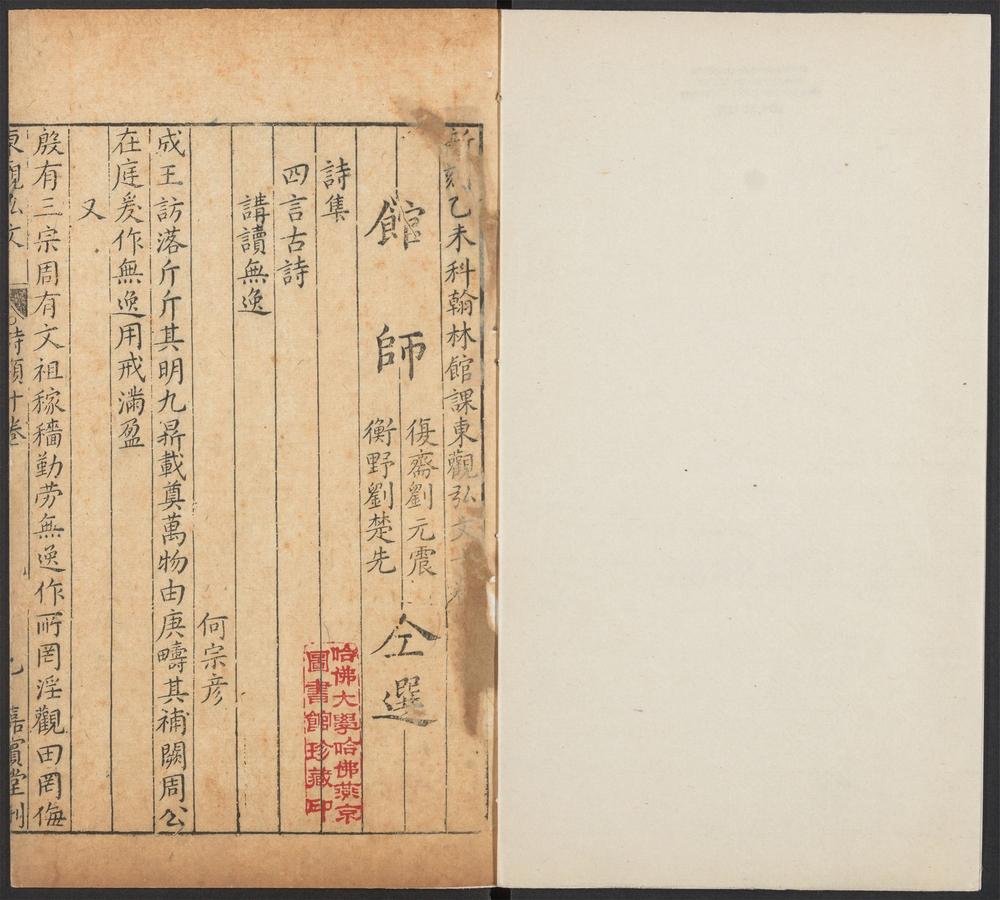 新刻乙未科翰林館課東觀弘文十卷
館師 復齋劉元震 仝選
衡野劉楚先
詩集
四言古詩
講讀無逸
何宗彥
成王訪落斤斤其明九鼎載奠萬物由庚疇其補闕周公
在庭爰作無逸用戒滿盈
又
殷有三宗周有文祖稼穡勤劳無逸作所罔淫觀田罔侮
東觀弘文 詩類十卷 嘉賓堂刊
哈佛大學哈佛燕京
圖書館珍藏印